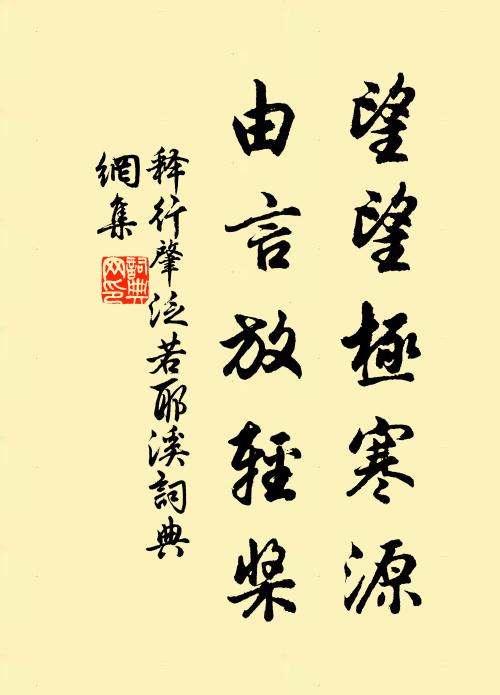 望望極寒源
由言放輕槳
释行肇泛若耶溪詞典
網集
詞典
网印